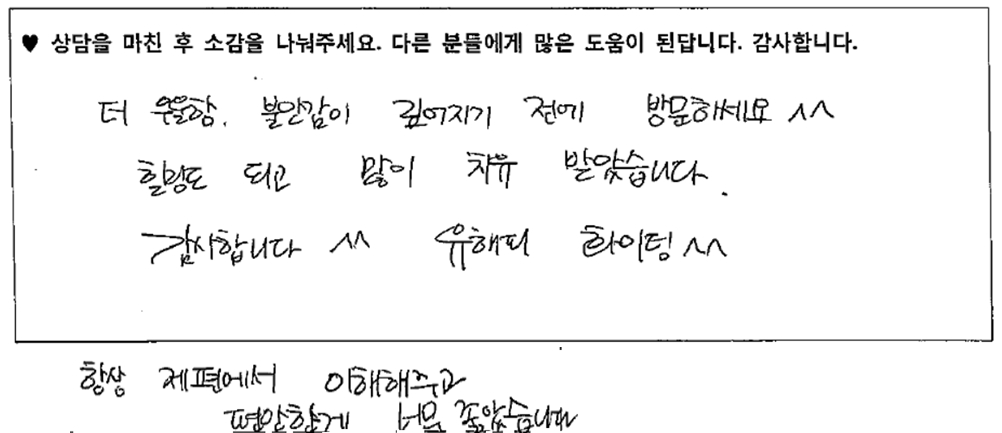 ♥ 상담을 마친 후 소감을 나눠주세요. 다른 분들에게 많은 도움이 된답니다. 감사합니다.
더 우울함. 불안감이 깊어지기 전에 방문하세요 ^^
힐링도 되고 많이 치유 받았습니다.
감사합니다 ^^ 유해피 화이팅 ^^
항상 제편에서 이해해주고
편안하게 너무 좋았습니다